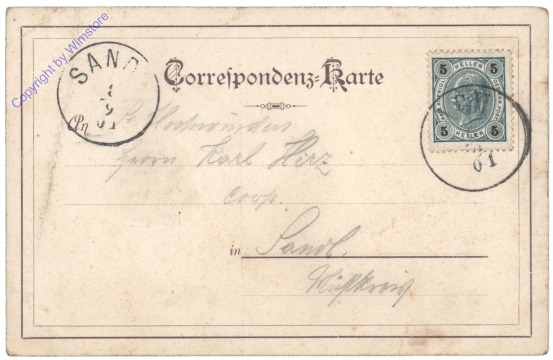 Copyright by Wimstore
SAND
8
9
01
Correspondenz-Karte
5 HELLER 5
5 HELLER 5
01
An
Sr Hochwürden
Herrn Karl Herz
Coop.
in Sandl.
Mühlkreis